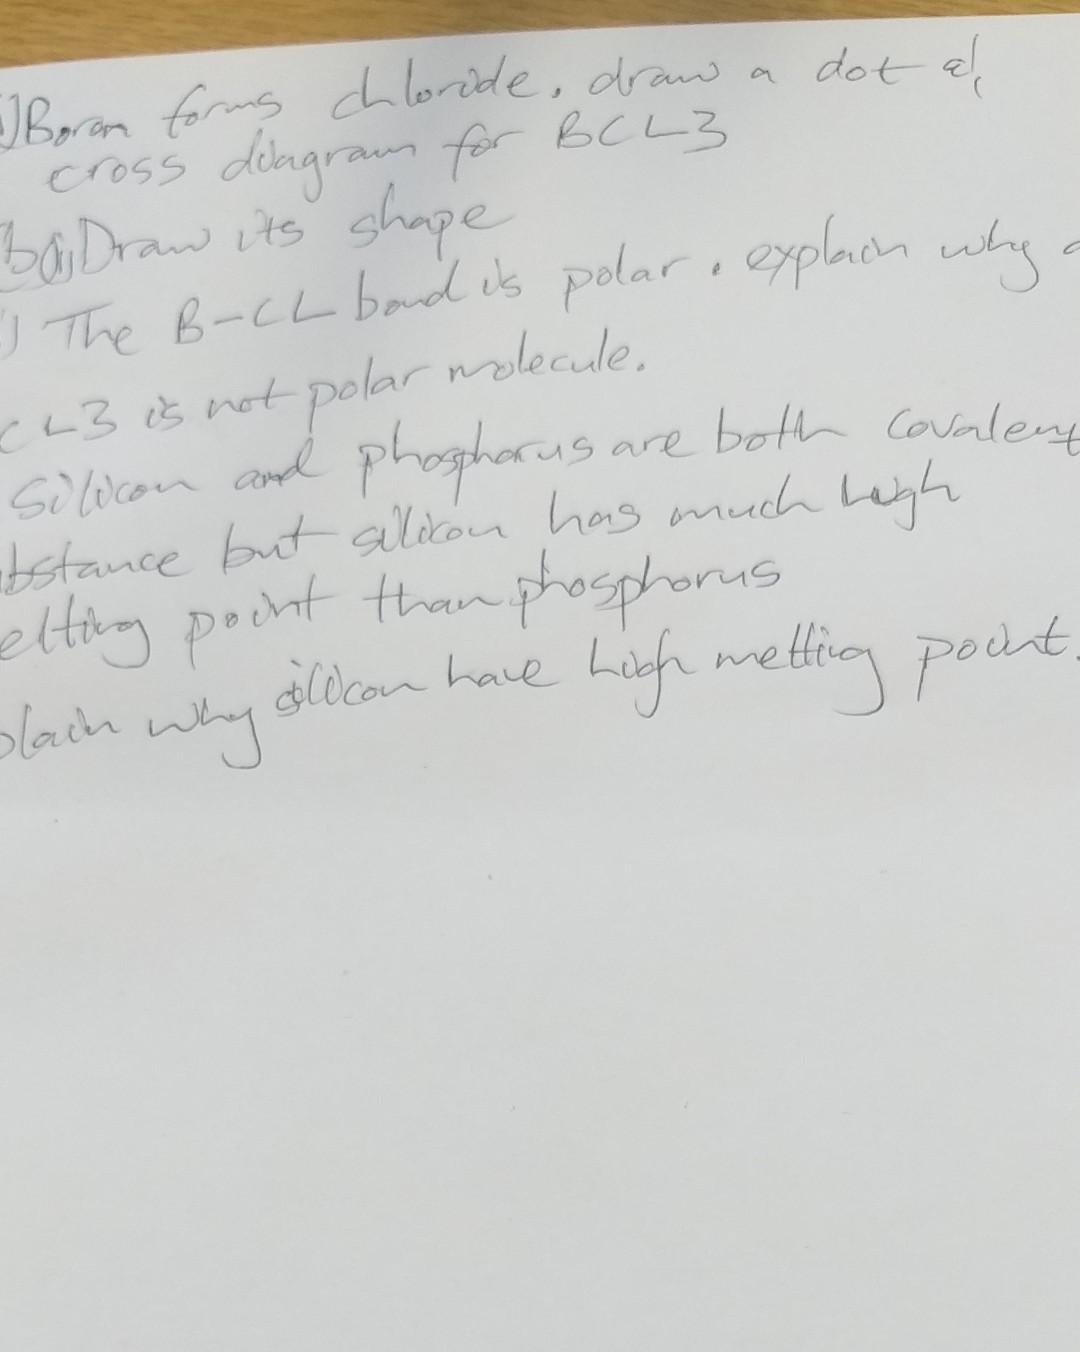 i) Boron forms chloride. draw a dot &
cross diagram for BCL3
b(i) Draw its shape
) The B-CL bond is polar. explain why
CL3 is not polar molecule.
Silicon and phosphorus are both covalent
bstance but silicon has much high
elting point than phosphorus
plain why silicon have high melting point.